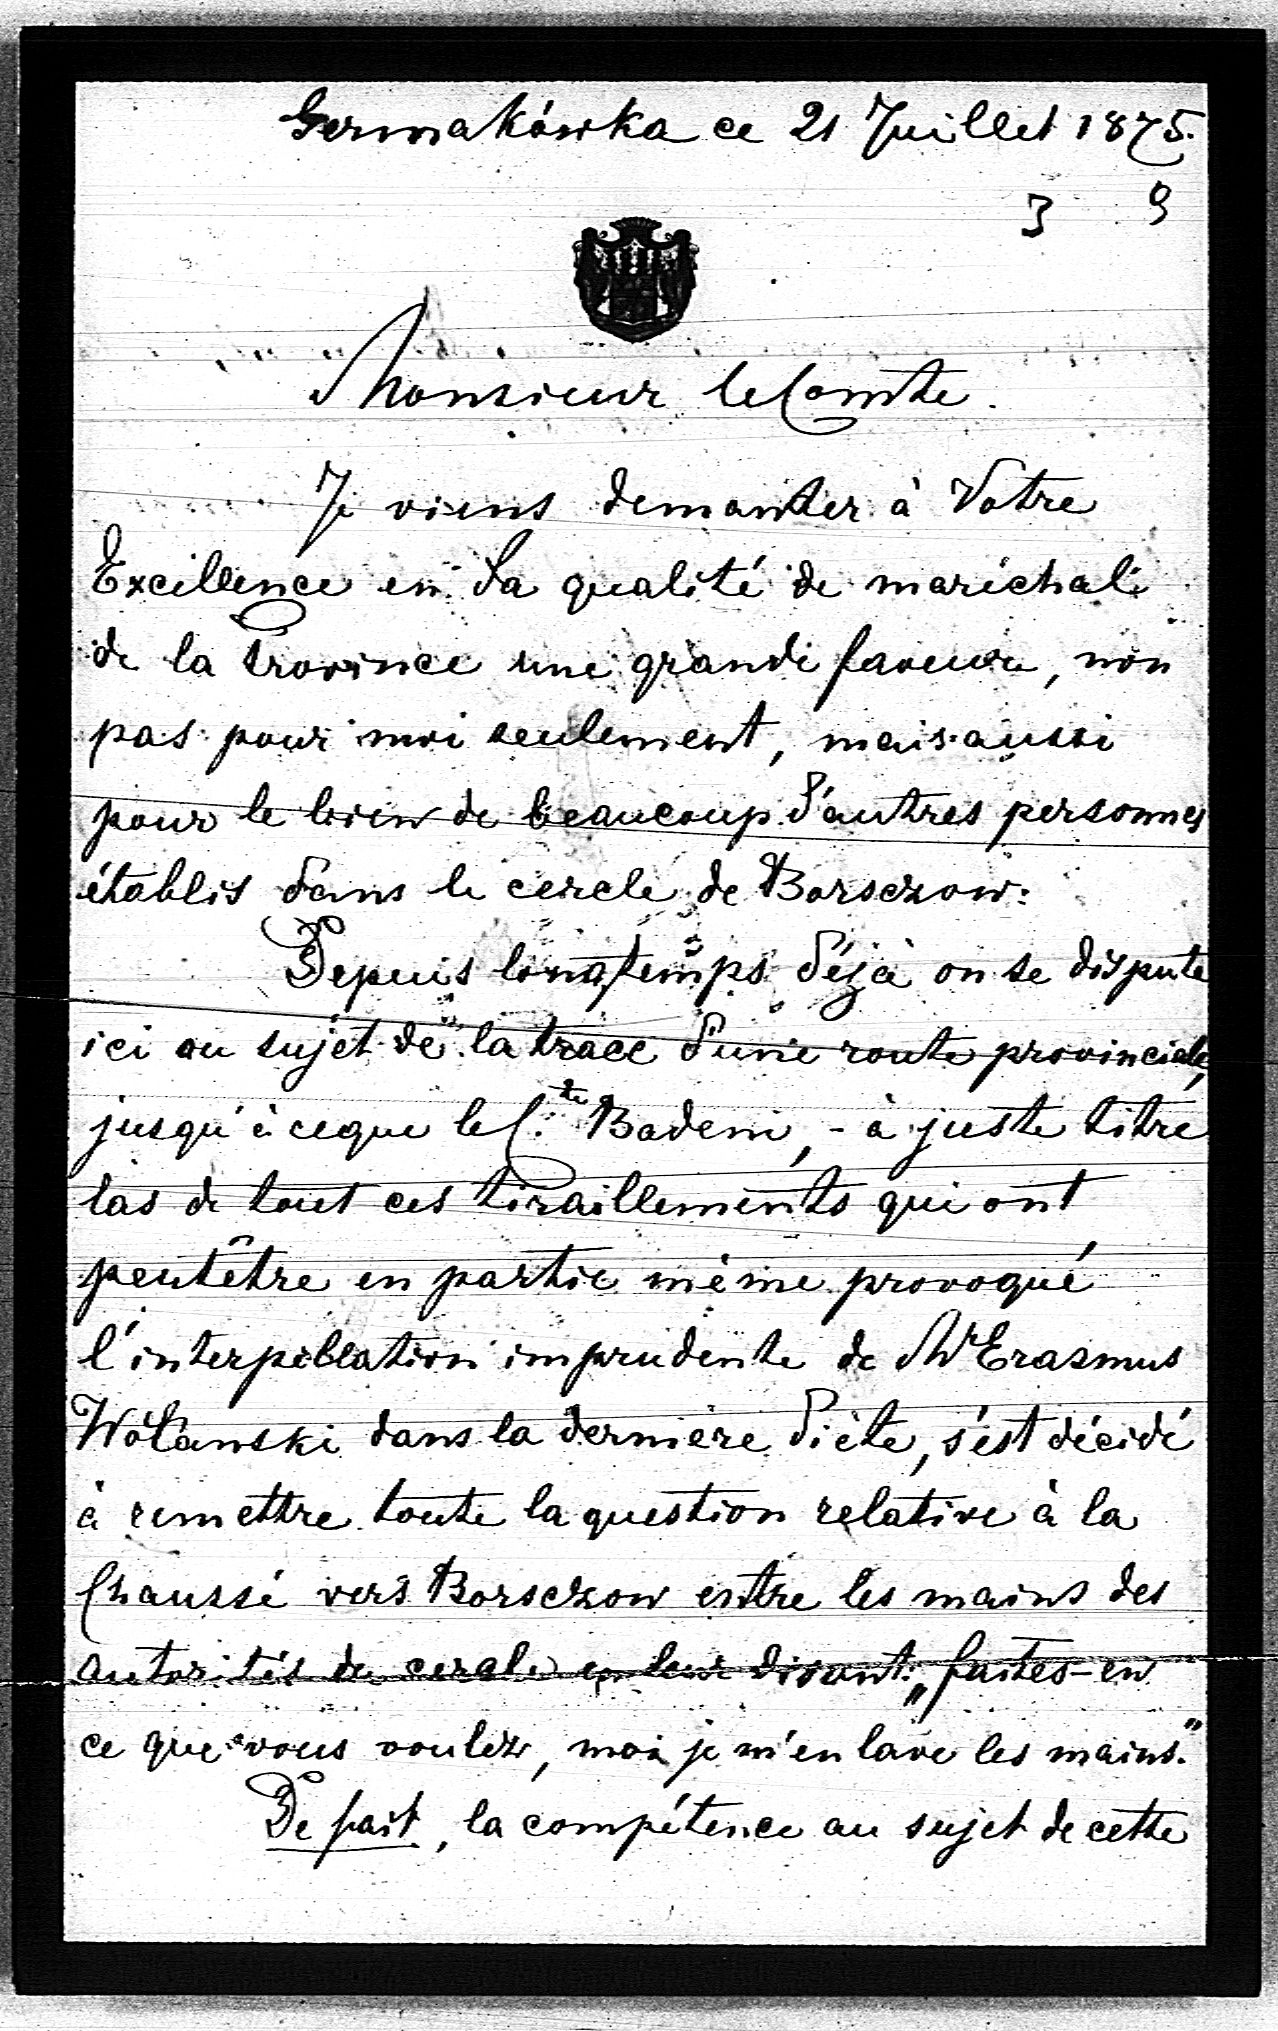 Germakówka ce 21 Juillet 1875.
3 9
Monsieur le Comte.
Je viens demander à Votre
Excellence en Sa qualité de maréchal
de la Province une grande faveure, non
pas pour moi seulement, mais aussi
pour le bien de beaucoup d'autres personnes
établis dans le cercle de Borsczow:
Depuis longtemps déjà on se dispute
ici au sujet de la trace d'une route provinciale,
jusqu'à ceque le C.te Badeni, - à juste titre
las de tout ces tiraillements qui ont
peutêtre en partie même provoqué
l'interpellation imprudente de Mr Erasmus
Wolanski dans la dernière diète, s'est décidé
à remettre toute la question relative à la
Chaussé vers Borsczow entre les mains des
autorités de cercle en leur disant: „faites-en
ce que vous voulez, moi je m'en lave les mains."
De fait, la compétence au sujet de cette